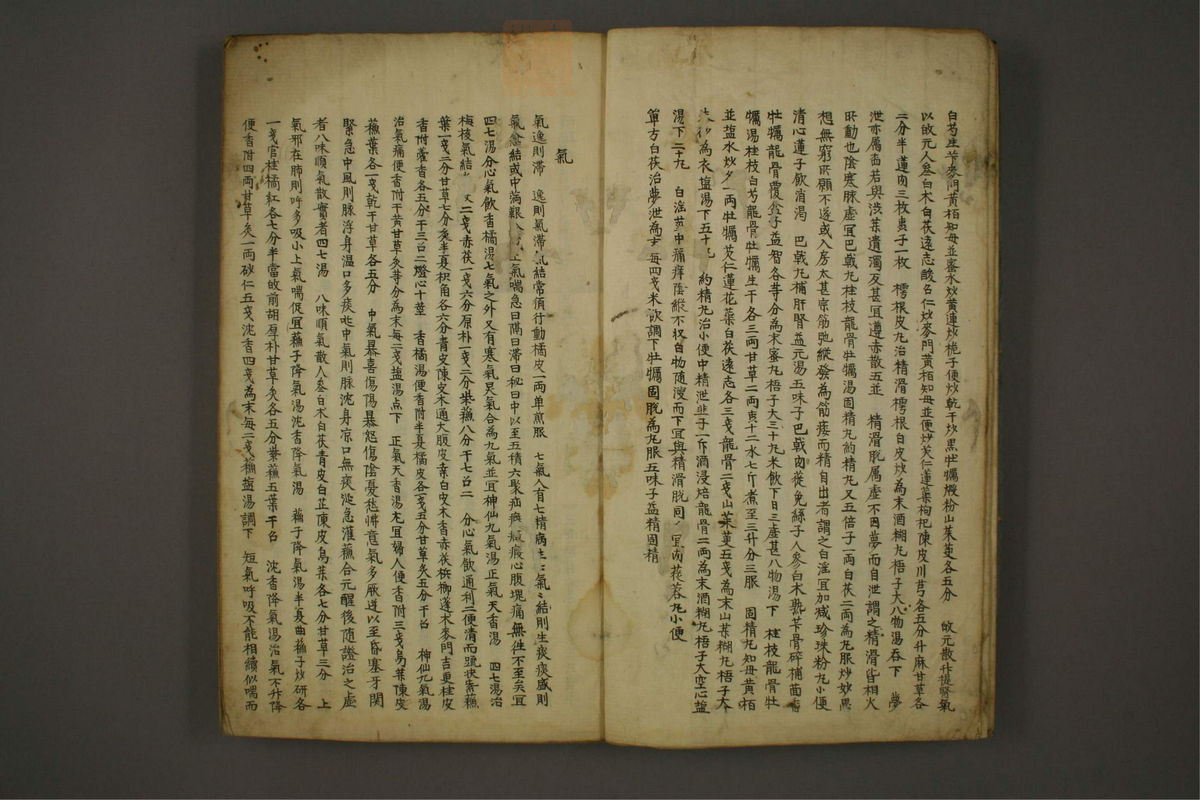 白芍生芐麥門黃栢知母並蜜水炒黃連炒梔子便炒乾干炒黑牡蠣煅粉山茱萸各五分 欱元散升提腎氣
以欱元人參白朮白茯遠志酸召仁炒麥門黃栢知母並便炒芡仁蓮葉枸杞陳皮川芎各五分升麻甘草各
二分半蓮肉三枚棗子一枚 樗根皮丸治精滑樗根白皮炒為末酒糊丸梧子大八物湯吞下 夢
泄亦屬 若與澁藥遺濁反甚宜遵赤散五並 精滑脫属虛不因夢而自泄謂之精滑皆相火
所動也陰寒脉虛宜巴戟丸桂枝龍骨牡蠣湯固精丸約精丸又五倍子一兩白茯二兩為丸服炒妙思
想無窮所願不遂或入房太甚宗筋弛縱發為筋痿而精自出者謂之白淫宜加减珍珠粉丸小便
清心蓮子飲消渴 巴戟丸補肝腎益元湯五味子巴戟肉蓯兔絲子人參白朮熟芐骨碎補茴香
牡蠣龍骨覆盆子益智各等分為末蜜丸梧子大三十丸米飲下日三虛甚八物湯下 桂枝龍骨牡
蠣湯桂枝白芍龍骨牡蠣生干各三兩甘草二兩棗十二水七斤煮至三升分三服 固精丸知母黃栢
並盐水炒夕一兩牡蠣芡仁蓮花蘂白茯遠志各三戔龍骨二戔山茱萸五戔為末山菜糊丸梧子大
為衣盐湯下五十 約精丸治小便中精泄韭子一斤酒浸焙龍骨二兩為末酒糊丸梧子大空心盐
湯下二十九 白淫莖中痛痒陰縱不收白物随溲而下宜與精滑脫同 宜肉蓯蓉丸小便
單方白茯治夢泄為末每四戔米飲調下牡蠣固脫為丸服五味子益精固精
氣
氣逸則滯 逸則氣滯氣結常須行動橘皮一兩单煎服 七氣人有七精病生七氣氣結則生痰痰盛則
氣愈結或中滿艱 上氣喘急曰隔曰滯曰秘曰中以至五積六聚疝癩癥瘕心腹塊痛無徃不至矣宜
四七湯分心氣飲香橘湯七氣之外又有寒氣炅氣合為九氣並宜神仙九氣湯正氣天香湯 四七湯治
梅核氣結 又二戔赤茯一戔六分厚朴一戔二分柴蘓八分干七召二 分心氣飲通利二便清而踈快紫蘓
葉一戔二分甘草七分灸半夏枳角各六分青皮陳皮木通大腹皮桑白皮木香赤茯檳榔蓬朮麥門吉更桂皮
香附藿香各五分干三召二燈心十莖 香橘湯便香附半夏橘皮各一戔五分甘草灸五分干召 神仙九氣湯
治氣痛便香附干黃甘草灸等分為末每二戔盐湯点下 正氣天香湯尤宜婦人便香附三戔烏藥陳皮
蘓葉各一戔乾干甘草各五分 中氣暴喜傷傷暴怒傷陰憂愁怫意氣多厥逆以至昏塞牙関
緊急中風則脉浮身温口多痰涎中氣則脉沉身凉口無痰涎急灌蘓合元醒後随證治之虛
者八味順氣散實者四七湯 八味順氣散人參白朮白茯青皮白芷陳皮烏藥各七分甘草三分 上
氣邪在肺則呼多吸小上氣喘促宜蘓子降氣湯沈香降氣湯 蘓子降氣湯半夏曲蘓子炒研各
一戔官桂橘紅各七分半當歸前胡厚朴甘草灸各五分紫蘓五葉干召 沈香降氣湯治氣不升降
便香附四兩甘草灸一兩砂仁五戔沈香四戔為末每二戔蘓盐湯調下 短氣呼吸不能相續似喘而